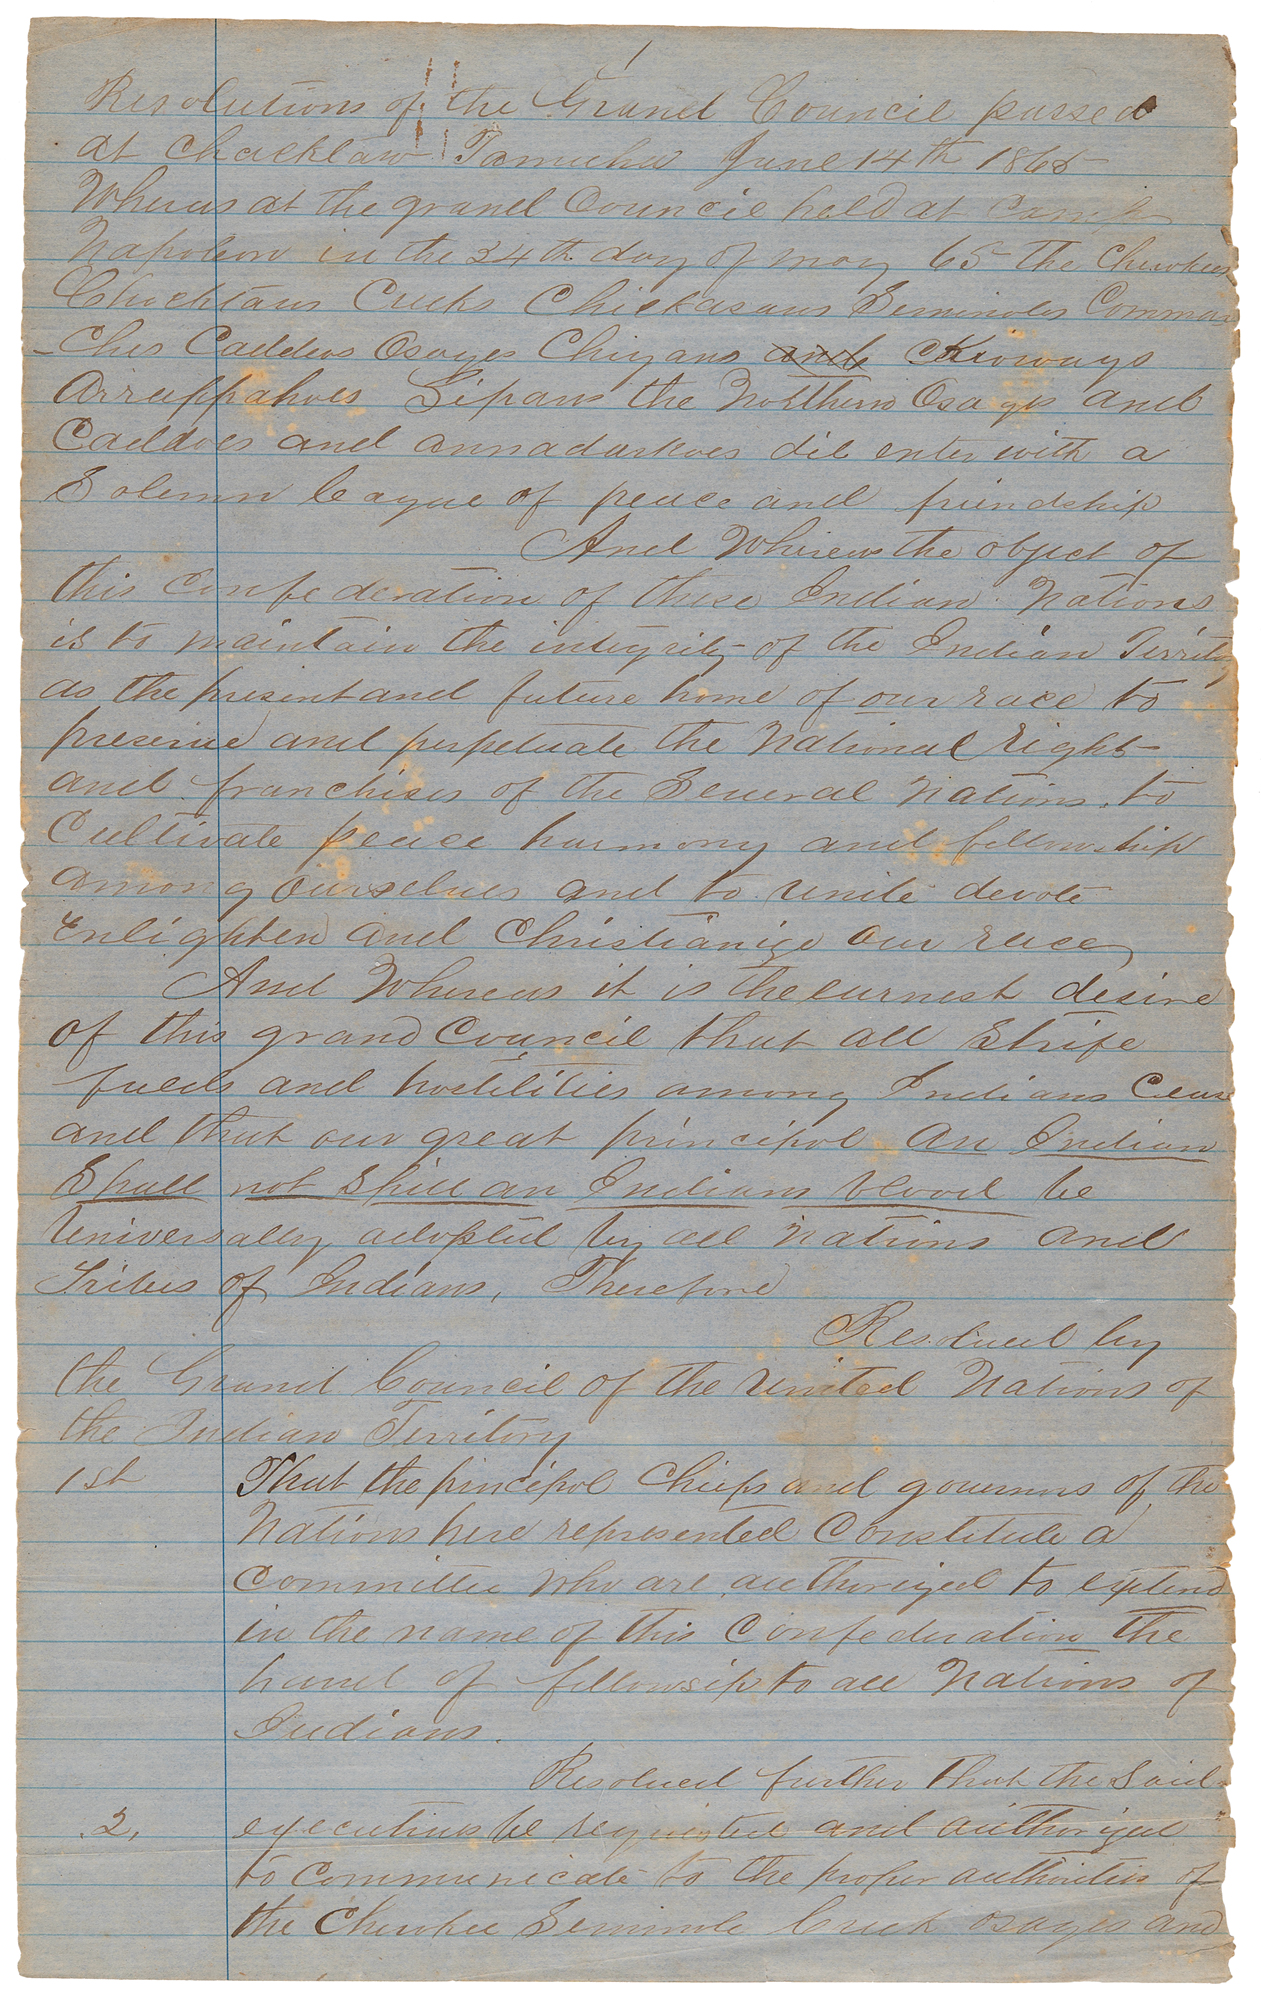 1
Resolutions of the Grand Council passed
at Chacktaw Tamuha June 14th 1865
Whereas at the grand Council held at Camp
Napoleon in the 24th day of may 65 the Cherokees
Chocktaws Creeks Chickasaws Seminoles Comman
-ches Caddos Osages Chiyans and Kioways
Arrappahoes Lipans the Northern Osages and
Caddoes and annadarkoes did enter with a
Solemn league of peace and friendship
And Whereas the object of
this Confederation of these Indian Nations
is to maintain the integrity of the Indian Territy
as the present and future home of our race to
preserve and perpetuate the National right
and franchises of the Several Nations, to
Cultivate peace harmony and fellowship
among ourselves and to unite devote
Enlighten and Christianize our race
And Whereas it is the earnest desire
of this grand Council that all Strife
fueds and hostilities among Indians Cease
and that our great principol An Indian
Shall not Spill an Indians blood be
Universally adopted by all Nations and
Tribes of Indians, Therefore
Resolved by
the Grand Council of the United Nations of
the Indian Territory
1st That the principol Chiefs and governors of the
Nations here represented Constitute a
Committee who are authorized to extend
in the name of this Confederation the
hand of fellowsip to all Nations of
Indians.
Resolved further that the Said
2. executives be requested and authorized
to Communicate to the proper authorities of
the Cherokee Seminole Creek Osages and